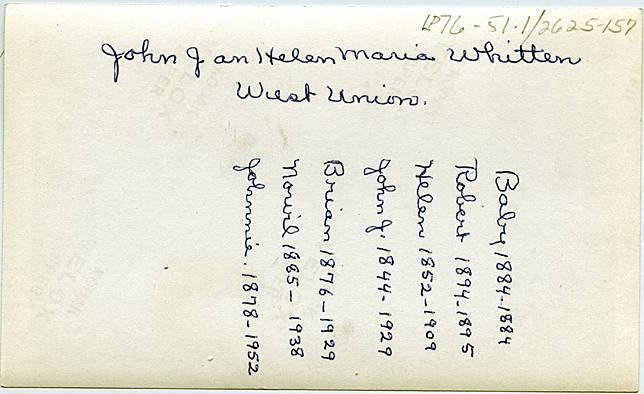 1876-51.1/2625-157
John J an Helen Maria Whitten
West Union.
Baby 1884-1884
Robert 1894-1895
Helen 1852-1909
John J. 1844-1929
Brian 1876-1929
Norvil 1885-1938
Johnnie. 1878-1952